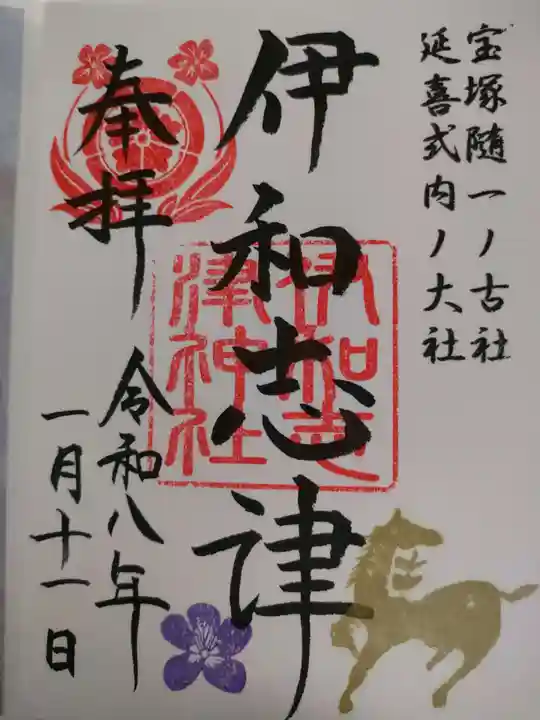 宝塚随一ノ古社
延喜式内ノ大社
伊和志津
伊和志
津神社
奉拝
令和八年
一月十一日